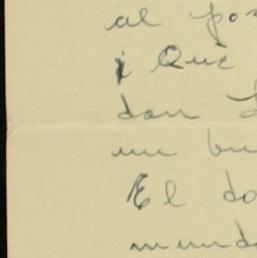 al po
¡Qué
dan
un bu
El do
mundo